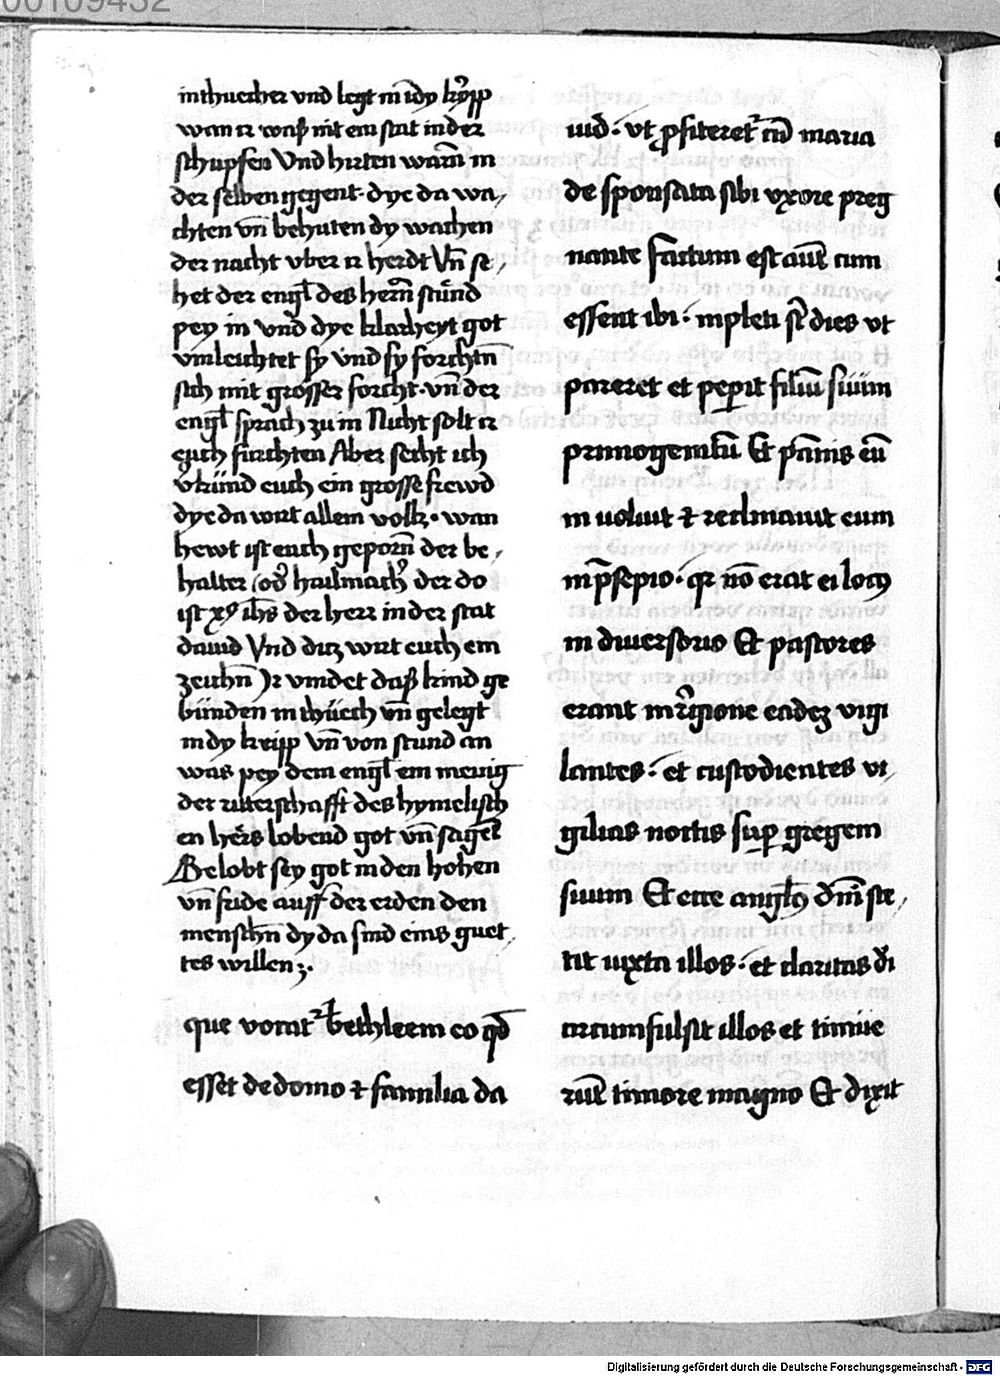 00109432
in thuecher vnd legt in in dy krypp
wan ir waß nit ein stat in der
schupfen Vnd hirten warn̄ in
der selben gegent · dye da wa,
chten vn̄ behuten dy wachen
der nacht vber ir herdt Vn̄ se,
het der engl̄ des hern̄ stuͤnd
pey in vnd dye klarheyt got
vmleuchtet sy vnd sy forchtn̄
sich mit grosser forcht · vn̄ der
engl̄ sprach zu in Nicht solt ir
euch furchten Aber secht ich
vͤkünd euch ein grosse frewd
dye da wirt allem volk · wan
hewt ist euch geporn̄ der be,
halter (od̓ hailmach̓ der do
ist xp̄s ih̄s der herr in der stat
dauid Vnd ditz wirt euch ein
zeichn̄ Ir vindet daß kind ge
bünden in thüech vn̄ gelegt
in dy kripp vn̄ von stund an
was pey dem engl̄ ein menig
der ritterschafft des hymelisch
en herˢ lobend got vn̄ sagēt
Gelobt sey got in den hohen
vn̄ fride auff der erden den
menschn̄ dy da sind eins guet,
tes willen ⁊.
que vocat᷑ bethleem eo qd̄
esset de domo ⁊ familia da
uid · vt ꝓfiteret᷑ cū maria
de sponsata sibi vxore preg
nante Factum est autē cum
essent ibi · inpleti st̄ dies vt
pareret et peꝑit filiū suüm
primogenitū Et pānis eū
in uoluit ⁊ reclinauit eum
in p̄sepio · qr nō erat ei locꝰ
in diuersorio Et pastores
erant in r̓gione eadeꝫ vigi
lantes · et custodientes vi,
gilias noctis suꝑ gregem
suum Et ecce anglꝰ dn̄i ste,
tit iuxta illos · et claritas d̓i
circumfulsit illos et timüe
rūt timore magno Et dixit
Digitalisierung gefördert durch die Deutsche Forschungsgemeinschaft - DFG